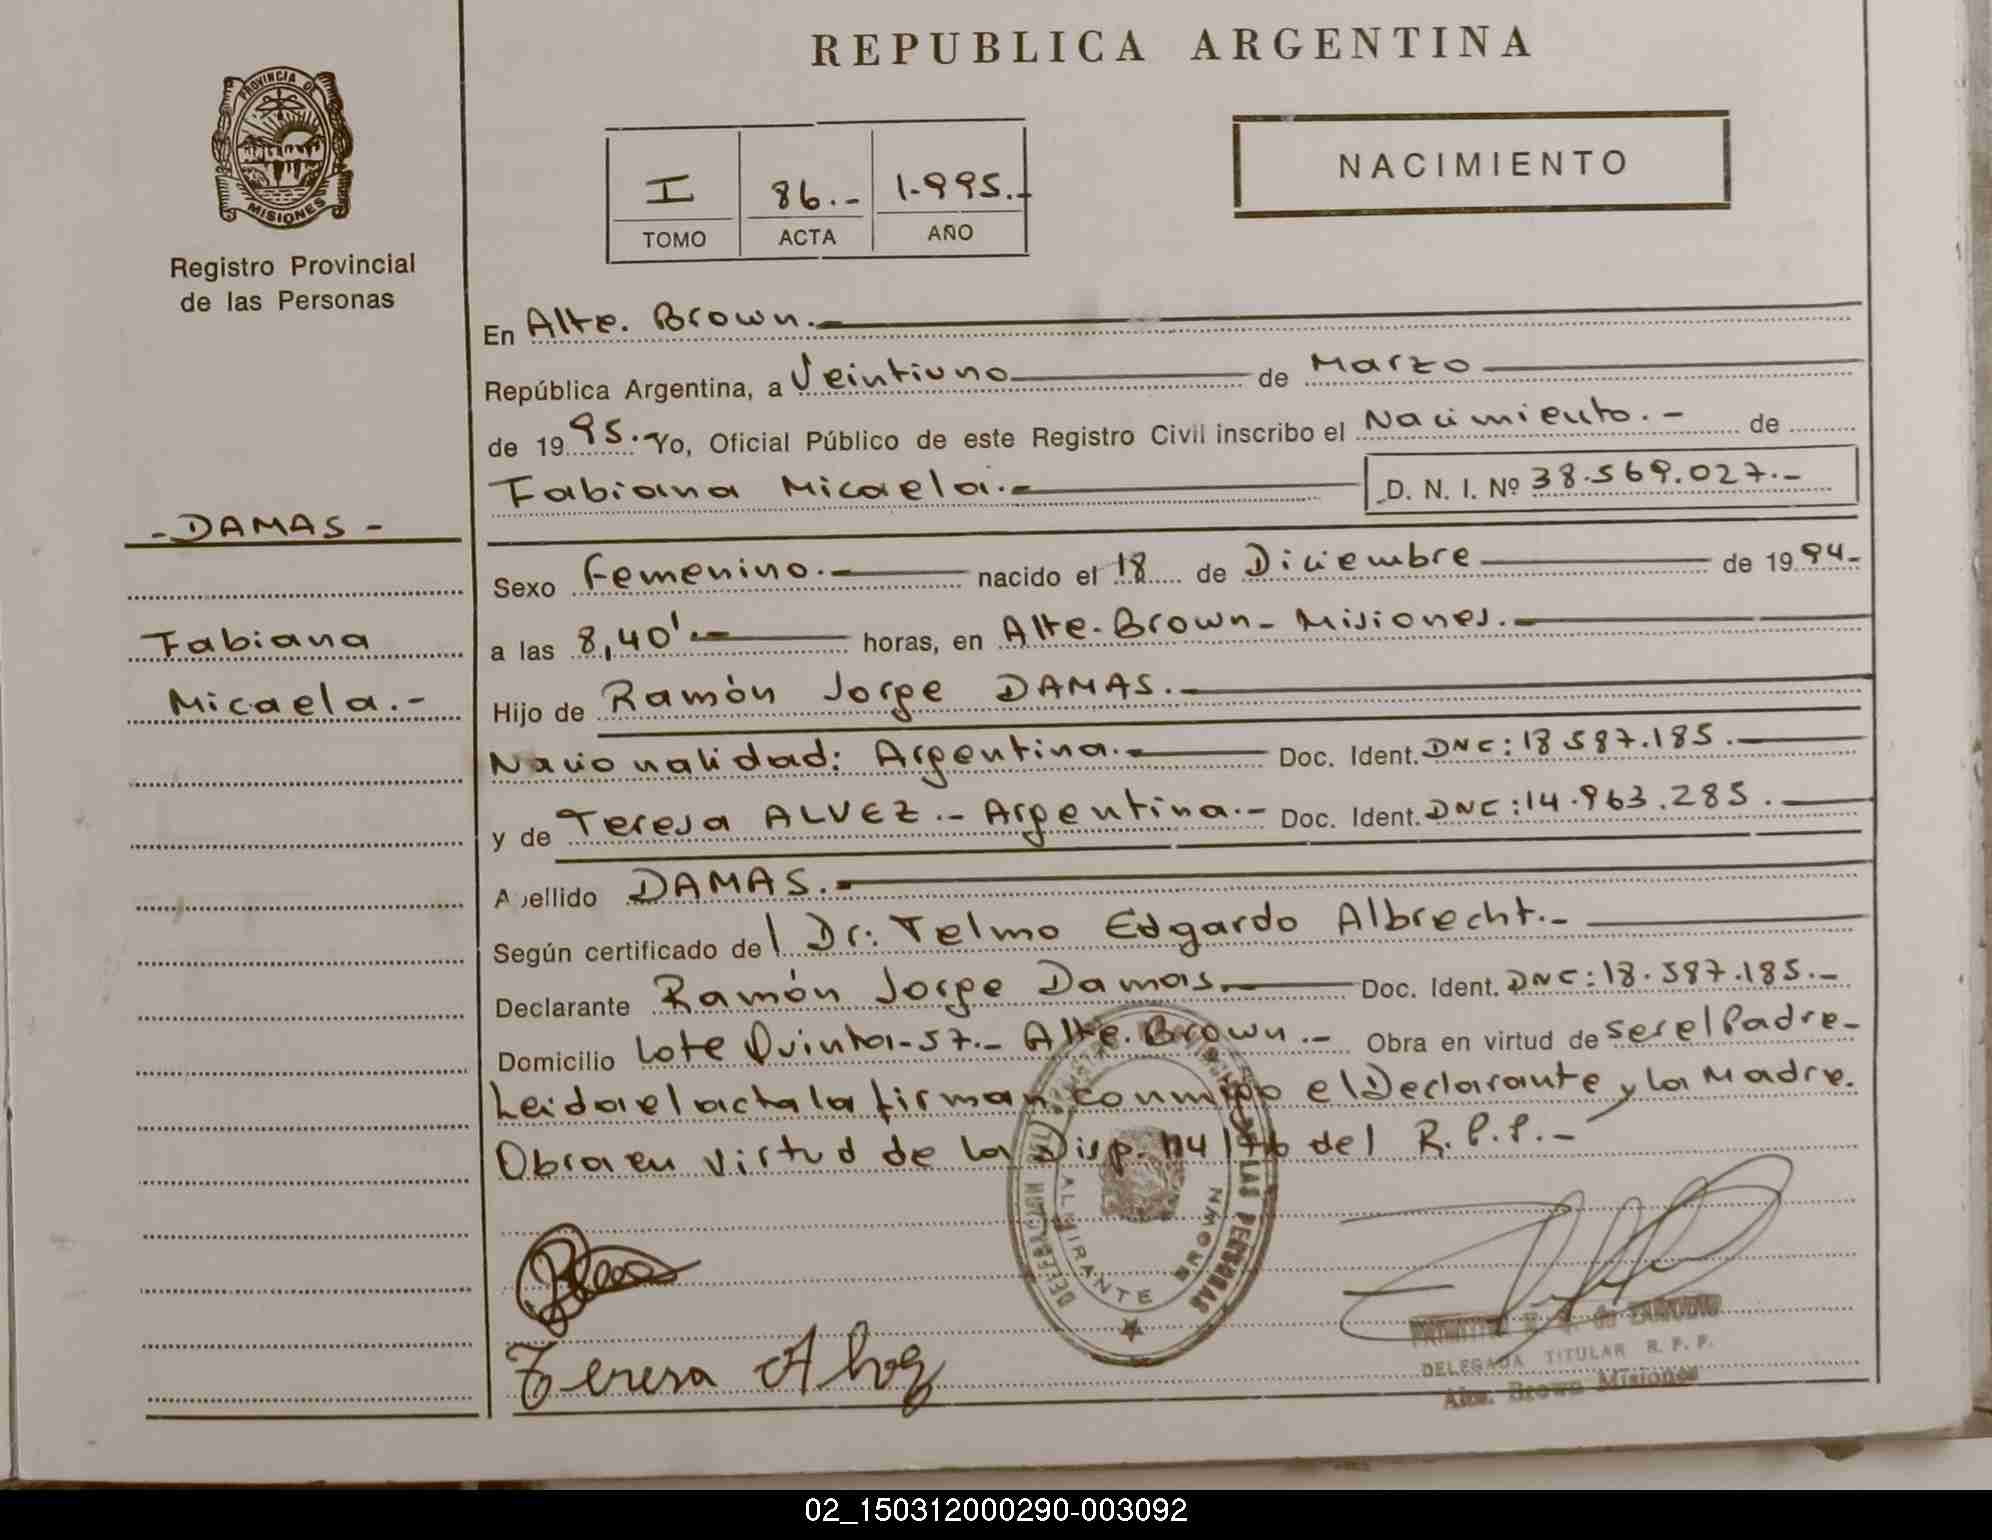 REPUBLICA ARGENTINA
PROVINCIA DE
MISIONES
Registro Provincial
de las Personas
I 86.- 1.995.-
TOMO ACTA AÑO
NACIMIENTO
En Alte. Brown.-
República Argentina, a Veintiuno de Marzo
de 1995.- Yo, Oficial Público de este Registro Civil inscribo el Nacimiento.- de
Fabiana Micaela.- D. N. I. Nº 38.569.027.-
- DAMAS -
Fabiana
Micaela.-
Sexo Femenino.- nacido el 18 de Diciembre de 1994-
a las 8,40'.- horas, en Alte. Brown - Misiones.-
Hijo de Ramón Jorge DAMAS.-
Nacionalidad: Argentina.- Doc. Ident. DNC: 18.587.185.-
y de Teresa ALVEZ.- Argentina.- Doc. Ident. DNC: 14.963.285.-
Apellido DAMAS.-
Según certificado del Dr: Telmo Edgardo Albrecht.-
Declarante Ramón Jorge Damas.- Doc. Ident. DNC: 18.587.185.-
Domicilio Lote Quinta-57.- Alte. Brown.- Obra en virtud de ser el Padre-
Leida el acta la firman conmigo el Declarante y la Madre.
Obra en virtud de la Disp. 114/76 del R.P.P.-
LAS PERSONAS
ALMIRANTE BROWN
Teresa Alvez
DELEGADA TITULAR R. P. P.
Alte. Brown Misiones
02_150312000290-003092